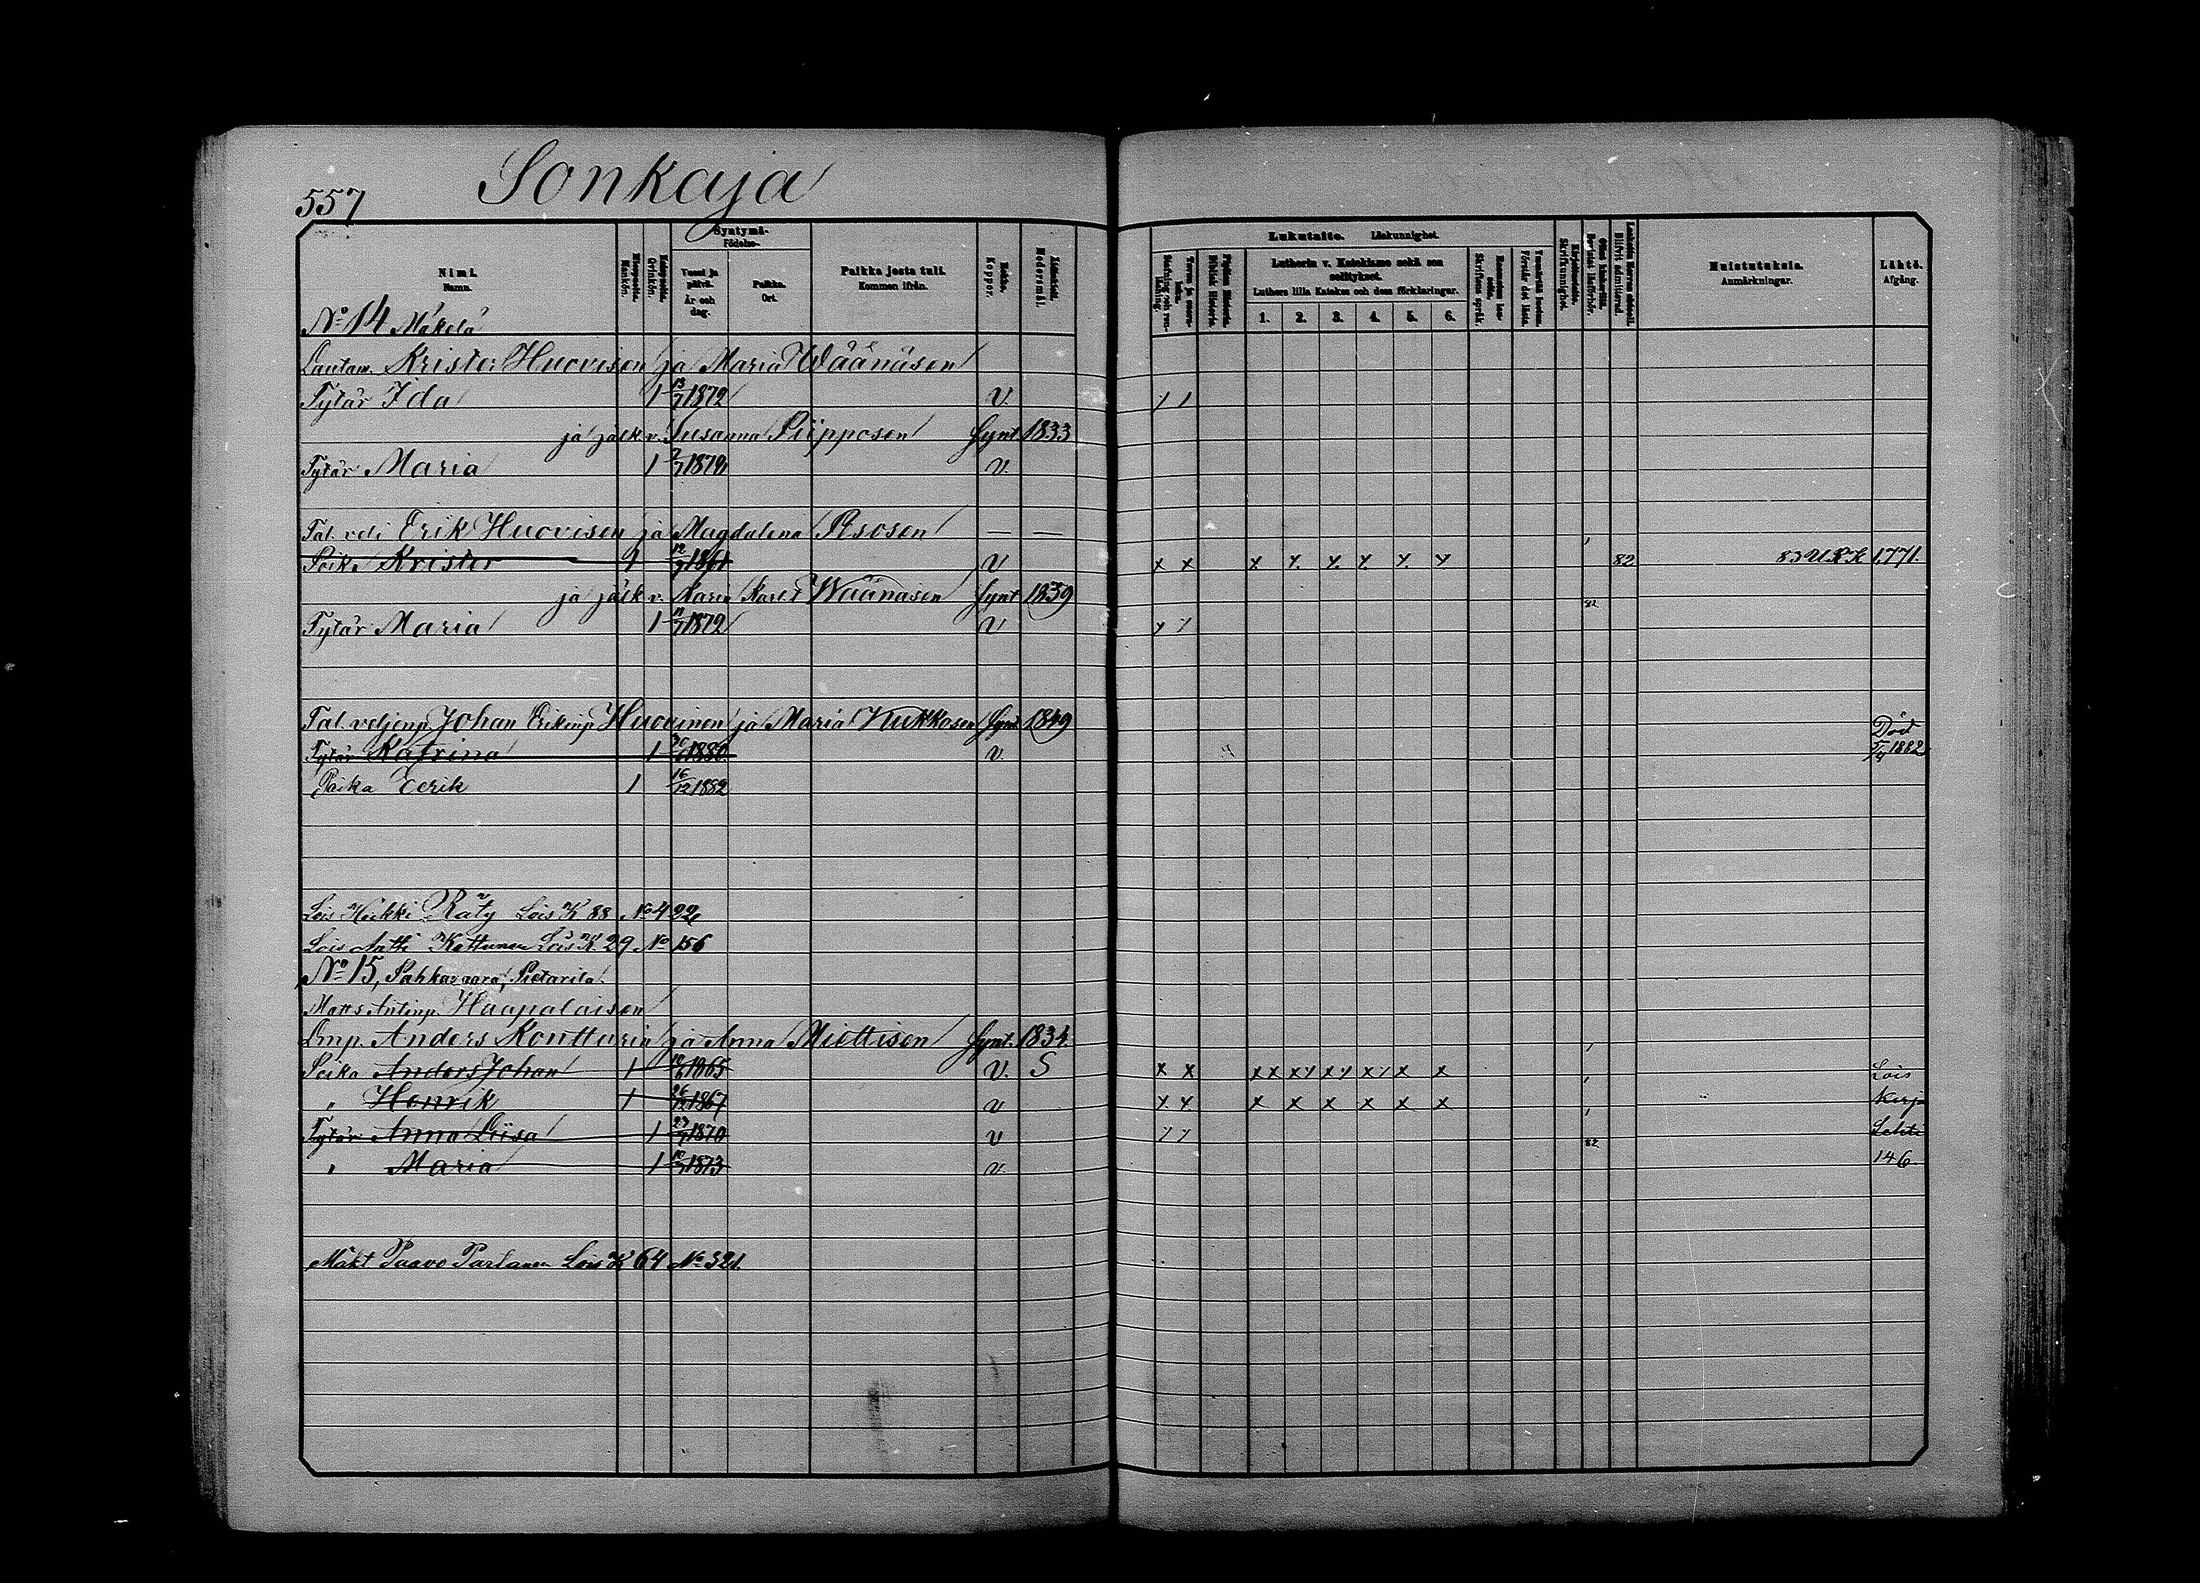 557 Sonkaja
Nimi. Namn. Miespuolta. Mankön. Naispuolta. Qvinkön. Syntymä- Födelse- Vuosi ja päivä. År och dag. Paikka. Ort. Paikka josta tuli. Kommen ifrån. Rokko. Koppor. Äidinkieli. Modersmål.
Lukutaito. Läskunnighet. Lutherin v. Katekismo sekä sen selitykset. Luthers lilla Katekes och dess förklaringar. 1. 2. 3. 4. 5. 6. Muistutuksia. Anmärkningar. Lähtö. Afgång.
No 14 Mäkelä
Lautam. Krister Huovisen ja Maria Wäänäsen
Tytär Ida 1 13/7 1872 V.
ja jälk v. Susanna Piipposen Synt 1833
Tytär Maria 1 1879 V.
Tal. veli Erik Huovisen ja Magdalena Ksosen — —
Poika Krister 1 12/7 1861 V x x x x x x x x 82 83 U.K.K 1,771.
ja jälk v. Karin Karl.t Wäänäsen Synt 1839 82
Tytär Maria 1 11/7 1872 V
Tal. veljenp. Johan Erikinp Huovinen ja Maria Kukkosen Synt 1849 Död
Tytär Katrina 1 1880 V. 5/4 1882
Poika Eerik 1 16/12 1882
Lois Heikki Räty Lois K 88 No 422
Lois Antti Kettunen Lois K 29 No 156
No 15, Pahkavaara, Pietarila.
Matts Antinp. Haapalaisen
Lmp. Anders Kontturin ja Anna Miettisen Synt. 1834.
Poika Anders Johan 1 1865 V. S x x x x x x x x x x x x Lois
" Henrik 1 26/12 1867 V x x x x x x x x Kirja
Tytär Anna Liisa 1 23/7 1870 V 82 Lehti
" Maria 1 10/7 1873 V. 146.
Mäkt Paavo Partanen Lois K 64 No 321.